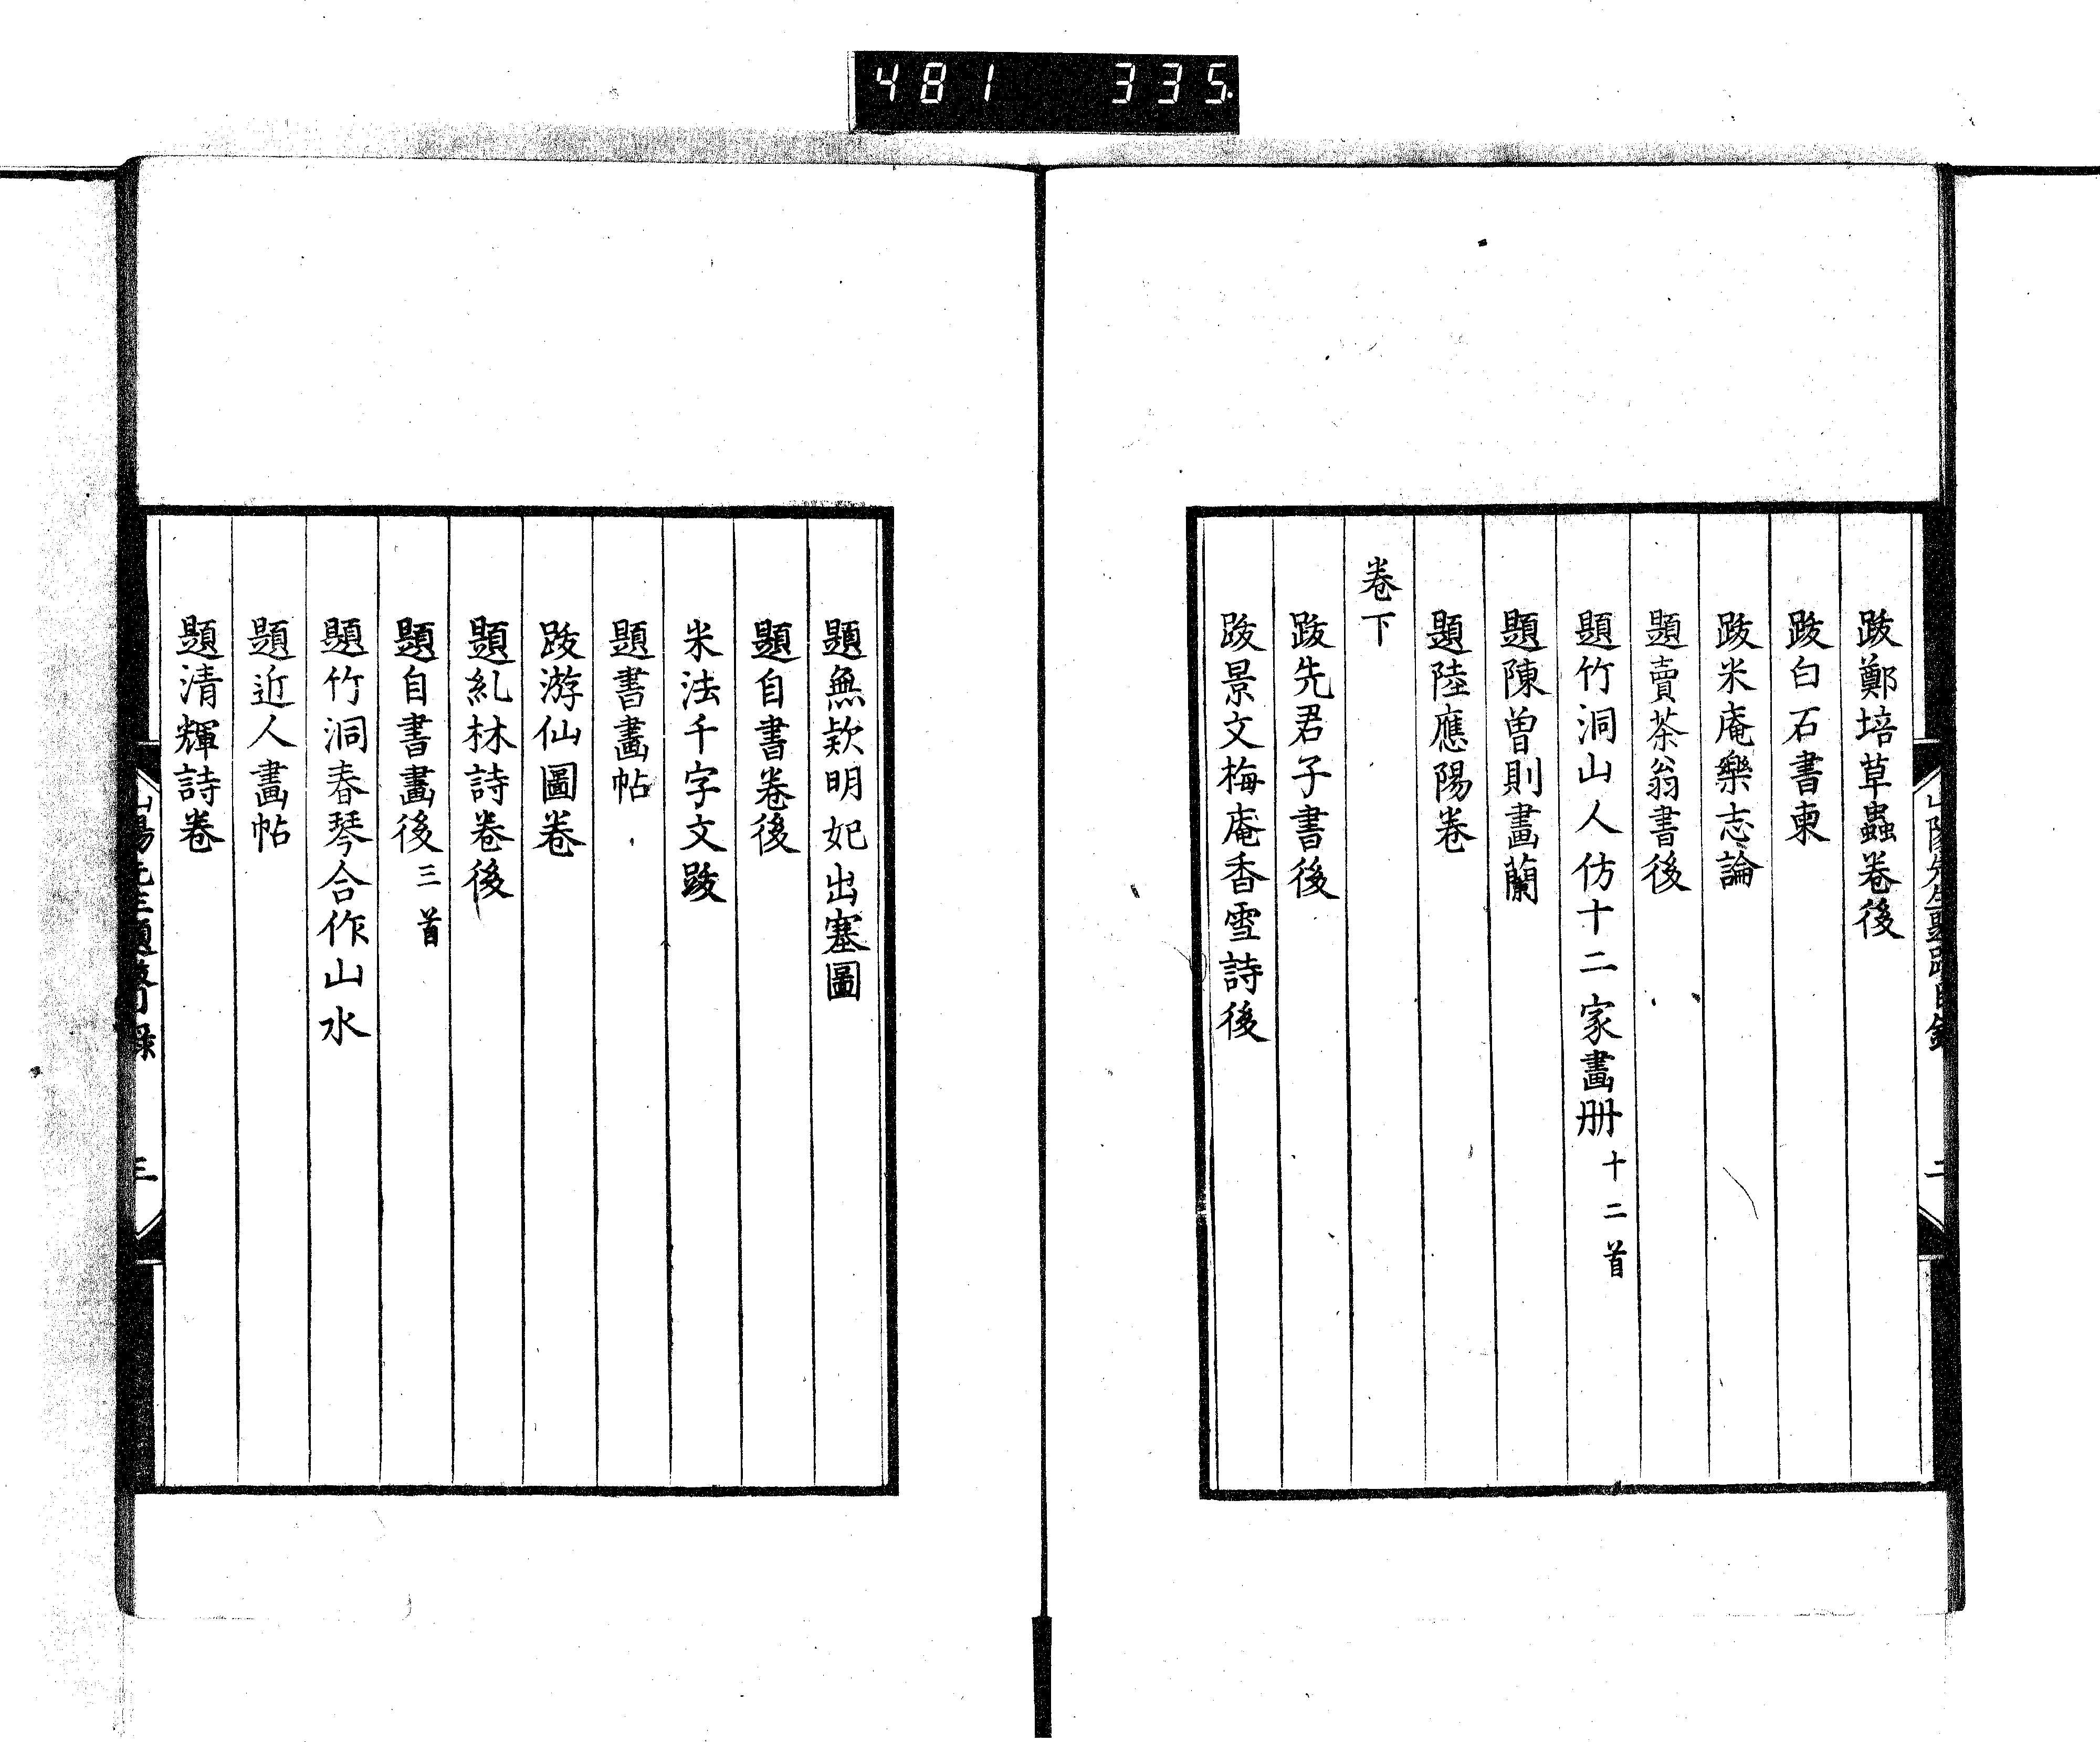 481 335
跋鄭培草蟲卷後
跋白石書柬
跋米庵樂志論
題賣茶翁書後
題竹洞山人仿十二家畫册十二首
題陳曾則畫蘭
題陸應陽卷
卷下
跋先君子書後
跋景文梅庵香雪詩後
題無款明妃出塞圖
題自書卷後
米法千字文跋
題書畫帖
跋游仙圖卷
題糺林詩卷後
題自書畫後三首
題竹洞春琴合作山水
題近人畫帖
題清輝詩卷
山陽先生題跋目錄
二
三